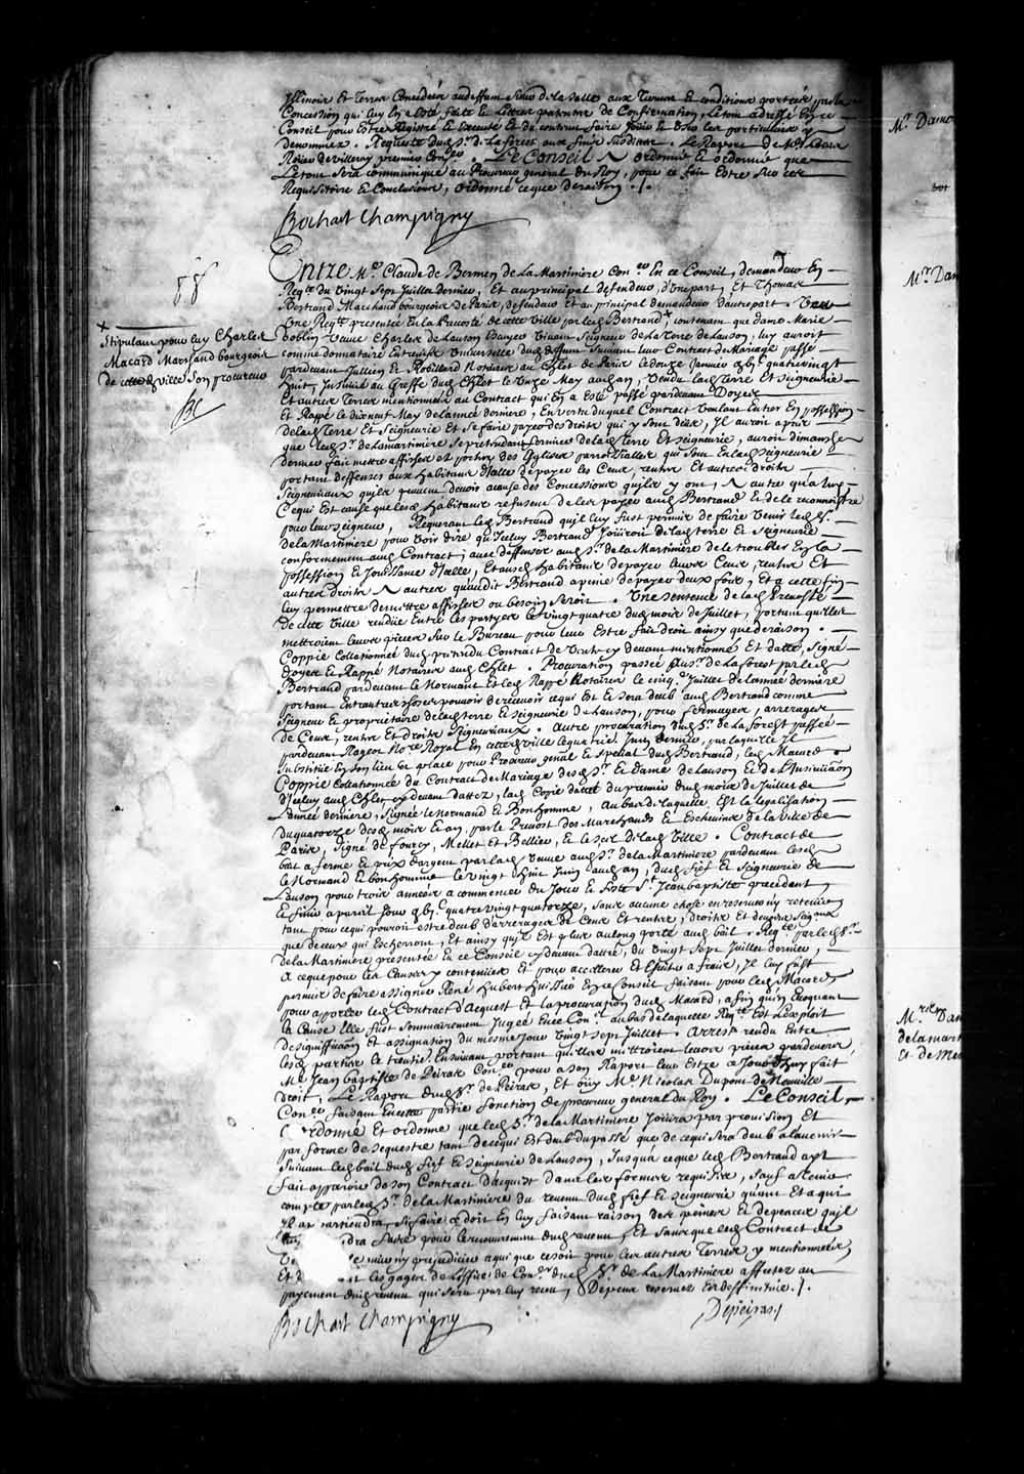 Illinois Et Terres Concedées audeffunt Sieur de la Salle aux Termes & conditions portées par la
Concession qui luy En a Esté faite & Lettres patentes de Confirmation, Letout adressé En ce
Conseil pour Estre Registré & Executé & de contenu faire Jouir & User les particuliers y
denommez. Requeste dud. Sr. de la forest aux fins Susdittes. Le Raport de Me Louis
Rouer de Villeray premier Conser. Le Conseil A ordonné & ordonne que
Le tout Sera communiqué au Procureur general du Roy, pour ce fait Estre Sur ses
Requisitoire & Conclusions, ordonné ce que de raison ./.
Bochart Champigny
Entre Me. Claude de Bermen de La Martiniere Conser En ce Conseil, demandeur En
Reqte du Vingt Sept Juillet dernier, Et au principal defendeur, d'Une part, Et Thomas
Bertrand Marchand bourgeois de Paris, defendeur et au principal demandeur d'autre part. Veu
Une Reqte presentée En la Prevosté de cette Ville par led. Bertrand +, contenant que dame Marie
Goblin Veuve Charles de Lauson Vivant Seigneur de la Terre de Lauson, luy auroit
comme donnataire Entrevifs Universelle dud. deffunt Suivant leur Contract de Mariage passé
pardevant Jullien & Robillard Notaires au Chlet de Paris le douze Janvier gbjc quatrevingt
huit, Insinué au Greffe dud. Chlet le Unze May aud. an, Vendu lad. Terre Et Seigneurie
Et autres Terres mentionnées au Contract qui En a Esté passé pardevant Doyen
Et Rappé le dixneuf May de lannée derniere, En vertu duquel Contract Voulant Entrer En possession
de lad. Terre Et Seigneurie Et Se faire payer des droits qui y Sont deus, Il auroit apris
que led. Sr. de Lamartiniere Se pretendant fermier de lad. Terre Et Seigneurie, auroit dimanche
dernier fait mettre affiches aux portes des Eglises parroissialles qui Sont En lad. Seigneurie
portant deffenses aux habitans d'Icelle de payer les Cens, rentes Et autres droits
Seigneuriaux qu'ils peuvent devoir acause des Concessions qu'ils y ont, A autre qu'à luy,
Ce qui Est cause que lesd. habitans refusent de les payer aud. Bertrand & de le reconnoistre
pour leur Seigneur, Requerant led. Bertrand qu'il luy fust permis de faire Venir led. Sr.
de la Martiniere pour Voir dire qu'Iceluy Bertrand Jouiroit de lad. terre & Seigneurie
conformement aud. Contract, avec deffenses aud. Sr. de la Martiniere de le troubler En la
possession & Jouissance d'Icelle, Et ausd. habitans de payer leurs Cens, rentes Et
autres droits A autres qu'audit Bertrand a peine de payer deux fois, Et a cette fin
luy permettre de mettre affiches ou besoin Seroit. Une Sentence de lad. Prevosté
de cette Ville rendüe Entre les partyes le Vingt quatre dud. mois de Juillet, portant qu'elles
mettroient leurs pieces Sur le Bureau pour leur Estre fait droit ainsy que de raison.
Coppie Collationnée dud. pretendu Contract de Vente cy devant mentionné Et datté, Signé
Doyen & Rappé Notaires aud. Chlet. Procuration passée aud. Sr. de la forest par led.
Bertrand pardevant le Normand Et led. Rappé Notaires le cinqe. Juillet de lannée derniere
portant Entrautres choses pouvoir de recevoir ce qui Est & Sera deub aud. Bertrand comme
Seigneur & proprietaire de lad. terre & Seigneurie de Lauson, pour fermages, arrerages
de Cens, rentes Et droits Seigneuriaux. Autre procuration dud. Sr. de la forest passée
pardevant Rageot Nore Royal En cetted. Ville le quatrie. Juin dernier, par laquelle Il
Substitüe En Son lieu & place pour Procureur genal & Special dud. Bertrand, led. Macard
Coppie Collationnée du Contract de Mariage desd. Sr. & dame de Lauson & de l'Insinuaõn
d'Iceluy aud. Chlet cy devant dattez, lad. Copie dattée du premier dud. mois de Juillet de
L'année derniere, Signée le Normand & Bonhomme, Au bas de laquelle Est la legalisation
du quatorze desd. mois & an, par le Prevost des Marchands & Eschevins de la Ville de
Paris, Signé de fourcy, Mellet Et Bellier, & le Scel de lad. Ville. Contract de
bail a ferme & prix d'argent par lad. Veuve aud. Sr. de la Martiniere pardevant lesd.
le Normand & bonhomme le Vingt huit Juin aud. an, dud. fief & Seigneurie de
Lauson pour trois années a commencer du Jour & feste St. Jean baptiste precedent
& finir a pareil Jour gbjc. quatrevingt quatorze, Sans aucune chose en reserver ny retenir
tant pour ce qui pouroit estre deub d'arrerages de Cens Et rentes, droits Et devoirs Seigaux
que de ceux qui Escherront, Et ainsy qu'il Est plus aulong porté aud. bail. Reqte par led. Sr.
de la Martiniere presentée En ce Conseil cy devant dattée, du Vingt Sept Juillet dernier,
A ce que pour les Causes y contenües Et pour accellerer Et Eviter a frais, Il luy fust
permis de faire assigner René hubert huissier En ce Conseil faisant pour led. Macard
pour aporter led. Contract d'Acquest Et la procuration dud. Macard, afin qu'en Evoquant
la Cause Elle fust Sommairement Jugée En ce Conl. au bas de laquelle Reqte Est L'exploit
de Signiffiaõn Et assignation du mesme Jour Vingt Sept Juillet. Arrest rendu Entre
lesd. parties le trentie. Ensuivant portant qu'elles mettroient leurs pieces pardevers
Me Jean baptiste de Peiras Conser pour a Son Raport leur Estre a Jourd'huy fait
droit, Le Raport dud. Sr. de Peiras, Et ouy Me. Nicolas Dupont de Neuville
Conser faisant En cette partie fonction de procureur general du Roy. Le Conseil
A ordonné Et ordonne que led. Sr. de la Martiniere Jouira par provision Et
par forme de Sequestre tant de ce qui Est deub du passé que de ce qui Sera deub a lavenir
Suivant led. bail dud. fief & Seigneurie de Lauson, Jusqu'a ce que led. Bertrand ayt
fait apparoir de Son Contract d'acquist dans les formes requises, Sauf a tenir
compte par led. Sr. de la Martiniere du revenu dud. fief & Seigneurie quant Et a qui
Il apartiendra, Si faire Se doit En luy faisant raison des peines & depences qu'il
dra faire pour le recouvrement dud. revenu, Et Sans que led. Contract de
nuire ny prejudicier a qui que ce soit pour les autres Terres y mentionnées,
Et les gages de L'office de Conser dud. Sr. de La Martiniere affectez au
payement dud. revenu qui Sera par luy receu, Depens reservez En deffinitive ./.
Bochart Champigny
Depeiras
+
Stipulant pour luy Charles
Macard Marchand bourgeois
de cetted. ville Son procureur
BC
Mr. Damo
Mr. Dam
Mrs. Dam
de la mart
Et de Me